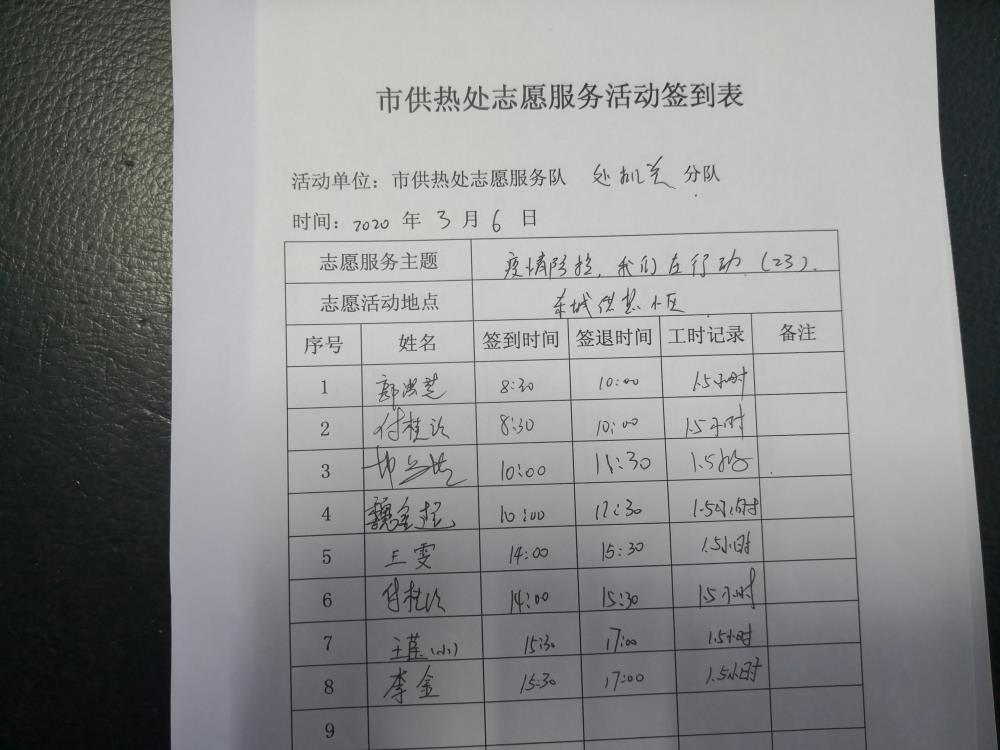 市供热处志愿服务活动签到表
活动单位：市供热处志愿服务队 处机关 分队
时间：2020 年 3 月 6 日
志愿服务主题 疫情防控，我们在行动（23）.
志愿活动地点 东城供热小区
序号 姓名 签到时间 签退时间 工时记录 备注
1 8:30 10:00 1.5小时
2 付桂议 8:30 10:00 1.5小时
3 10:00 1.5小时
4 魏金 10:00 1.5小时
5 王雯 14:00 15:30 1.5小时
6 付桂议 14:00 15:30 1.5小时
7 王莲（小） 15:30 17:00 1.5小时
8 李金 15:30 17:00 1.5小时
9